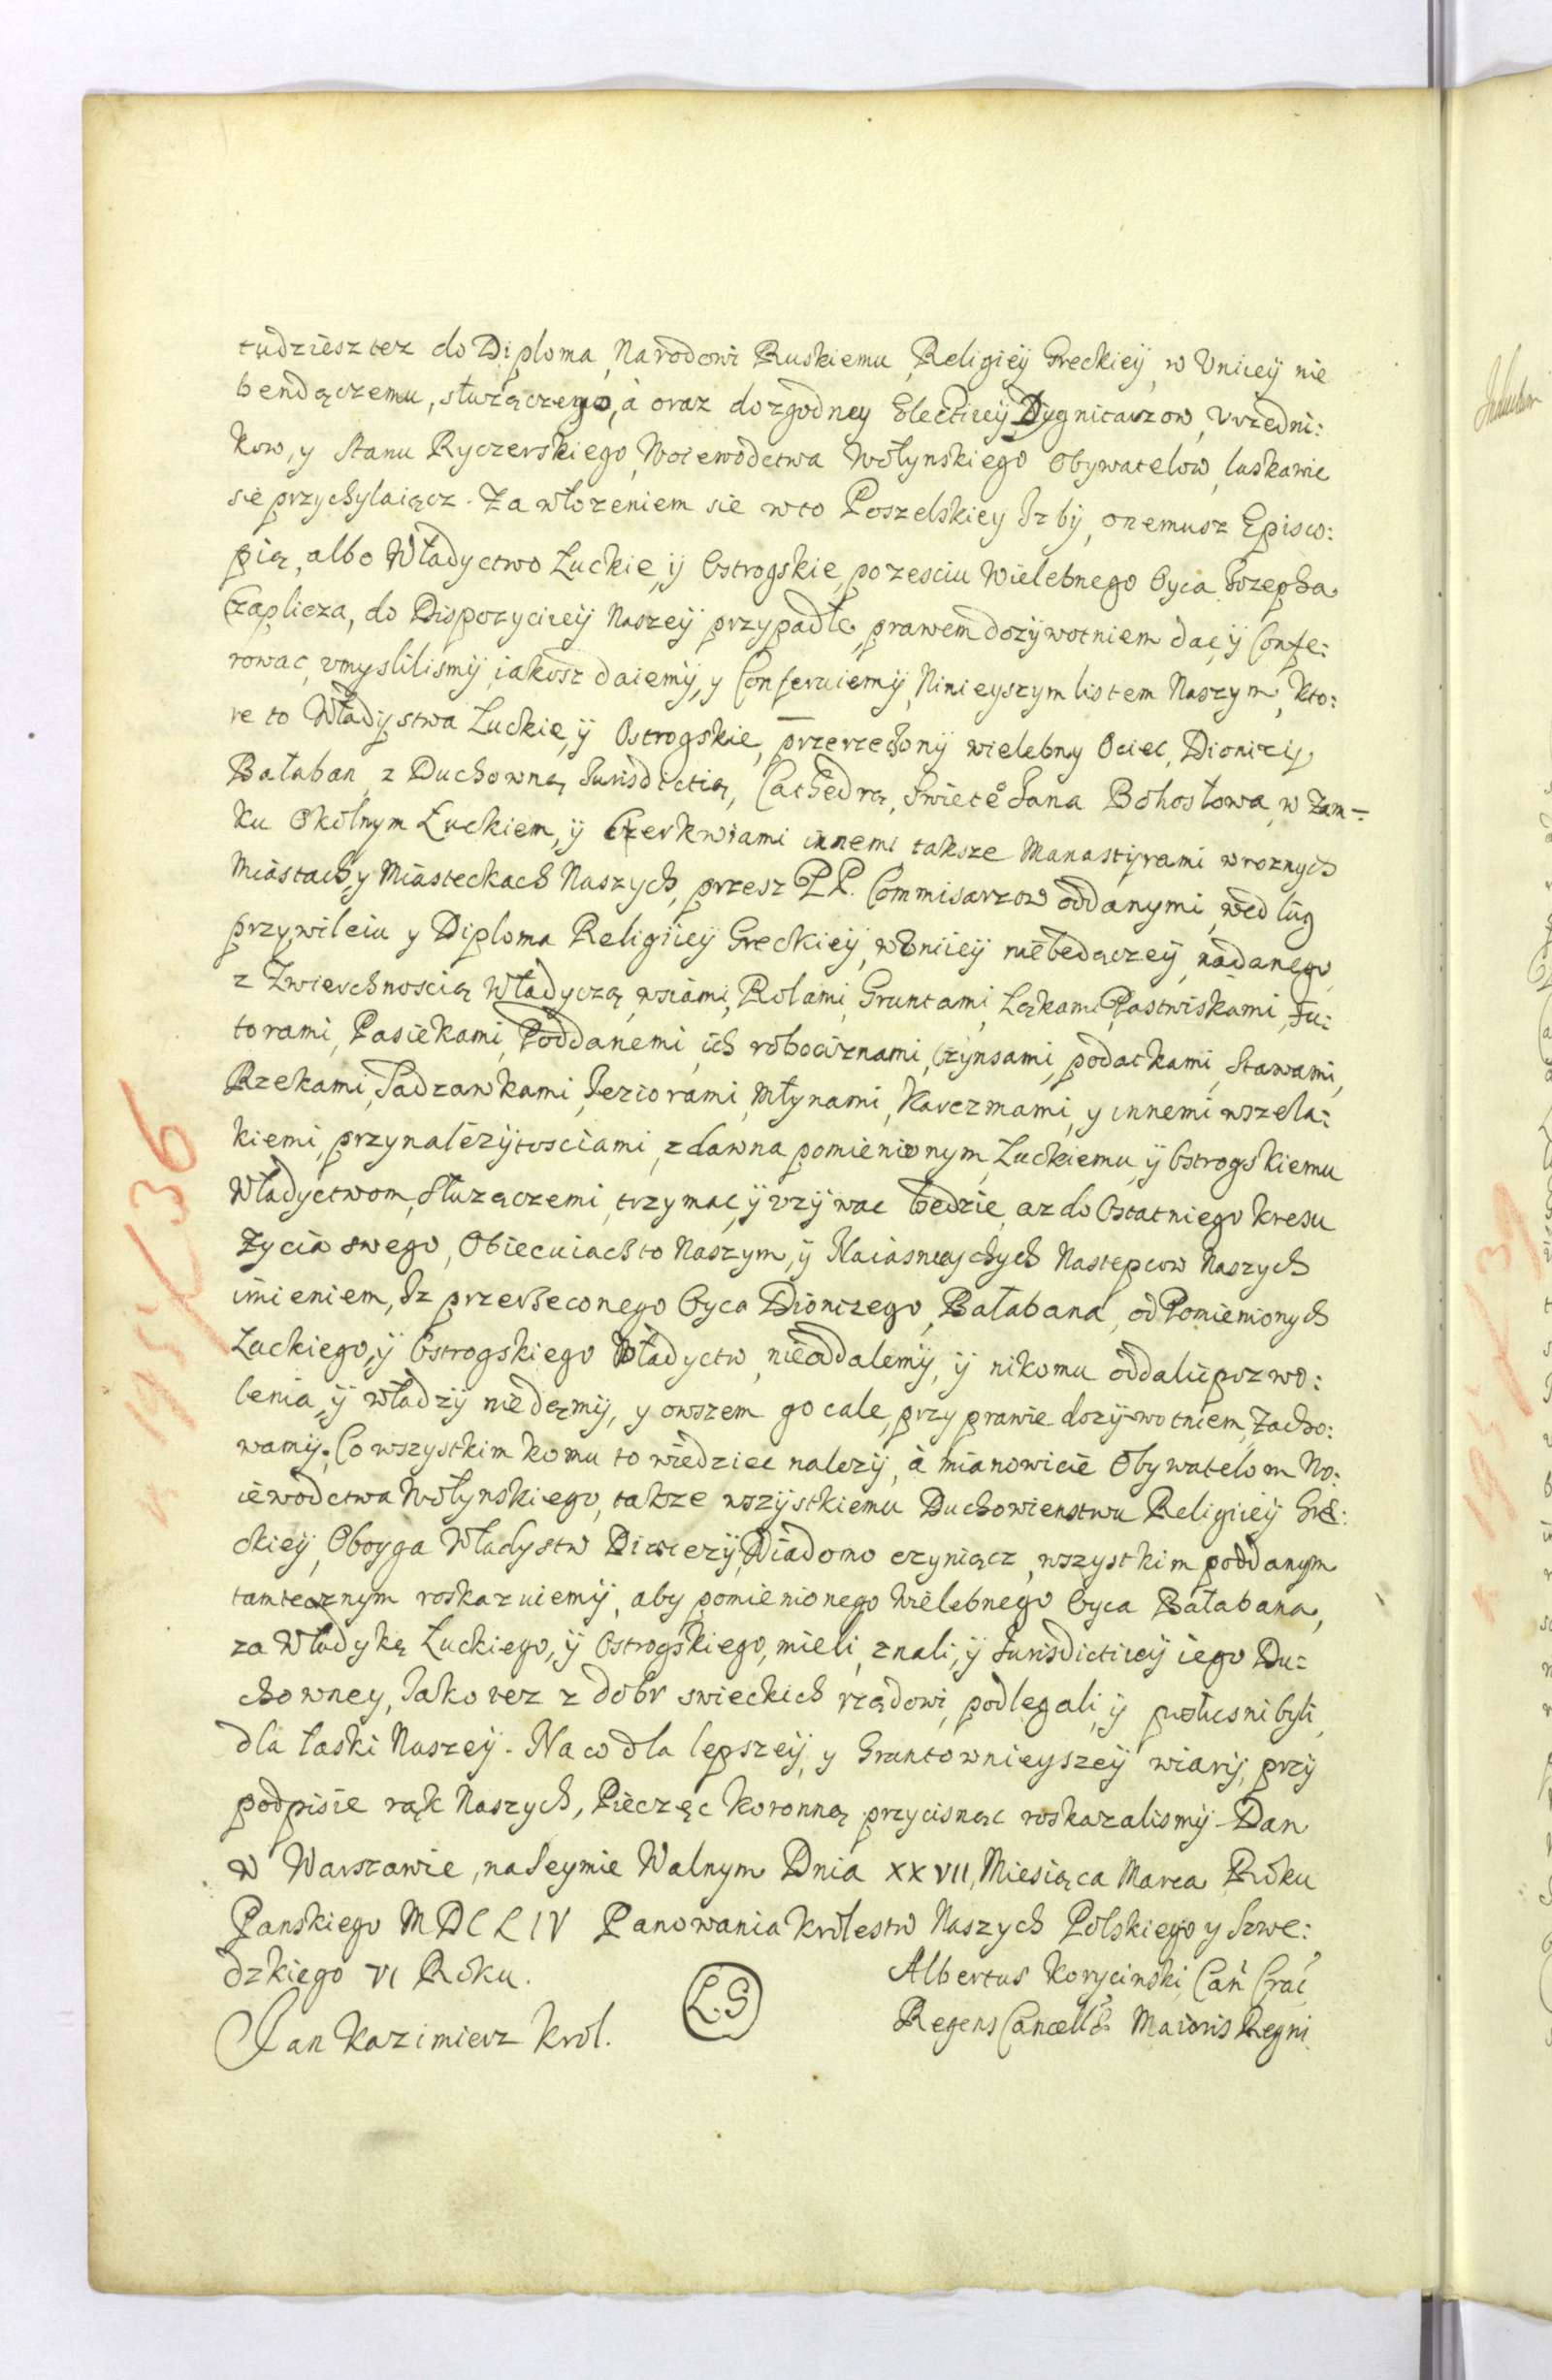 tudziesz tez do Diploma, Narodowi Ruskiemu, Religiey Greckiey, w Vniiey nie
bendączemu, służączego, à oraz do zgodney Electiiey Dygnitarzow, Vrzedni:
kow, y Stanu Ryczerskiego, Woiewodctwa Wołynskiego Obywatelow, laskawie
sie przychylaiącz. Za włozeniem sie w to Poszelskiey Jzbÿ, onemusz Episco:
pią, albo Władyctwo Łuckie, ÿ Ostrogskie, po zesciu Wielebnego Oyca Jozepha
Czaplicza, do Dispozyciiey Naszeÿ przypadłe, prawem dozÿwotniem dac, ÿ Confe:
rowac, vmyslilismÿ, iakosz daiemÿ, y Conferuiemÿ, Ninieyszym listem Naszym, kto:
re to Władystwa Łuckie, ÿ Ostrogskie, przerzeczonÿ wielebny Ociec, Dionizÿ
Bałaban, z Duchowną Jurisdictią, Cathedrą, Swiete° Jana Bohosłowa, w Zam-
ku Okolnym Łuckiem, ÿ Czerkwiami innemi, taksze Manastÿrami w roznych
Miastach, y Miasteckach Naszych, przesz PP. Commisarzow oddanymi, według
przywileiu y Diploma Religiiey Greckieÿ, w Vniieÿ nie będączeÿ, nadanego,
z Zwierchnoscią Władyczą, wsiami, Rolami, Gruntami, Łąkami, Pastwiskami, Fu:
torami, Pasiekami, Poddanemi, ich robociznami, Czÿnsami, podatkami, Stawami,
Rzekami, Sadzawkami, Jeziorami, Młynami, Karczmami, y innemi wszela:
kiemi, przynalezÿtosciami, zdawna pomienionym, Łuckiemu, ÿ Ostrogskiemu
Władyctwom, Służączemi, trzymac, ÿ vzÿwac będzie, az do Ostatniego kresu
Zycia swego, Obiecuiach to Naszym, ÿ Naiasnieyszych Nastepcow Naszych
imieniem, Jz przerzeconego Oyca Dionizego, Bałabana, od Pomienionych
Łuckiego, ÿ Ostrogskiego Władyctw, nieoddalemÿ, ÿ nikomu oddalic pozwo:
lenia, ÿ władzÿ nie dęmÿ, y owszem go cale, przy prawie dozÿwotniem, Zacho:
wamÿ. Co wszystkim komu to wiedziec nalezÿ, à mianowicie Obywatelom Wo:
iewodctwa Wołynskiego, takze wszÿstkiemu Duchowienstwu Religiieÿ Gre:
ckieÿ, Oboyga Władystw Dieceziÿ, Wiadomo czyniącz, wszystkim poddanym
tamtecznym roskazuiemÿ, aby pomienionego Wielebnego Oyca Bałabana,
za Władykę Łuckiego, ÿ Ostrogskiego, mieli, znali, ÿ Jurisdictiieÿ iego Du:
chowney, Jako tez z dobr swieckich rządowi, podlegali, ÿ posłusni byli,
dla łaski Naszeÿ. Na co dla lepszeÿ, y Gruntownieyszeÿ wiarÿ, przÿ
podpisie rąk Naszych, Pieczęc koronną przycisnąc roskazalismÿ. Dan
w Warszawie, na Seymie Walnym Dnia XXVII, Miesiąca Marca Roku
Panskiego MDCLIV Panowania Krolestw Naszych Polskiego y Szwe:
dzkiego VI Roku.
Jan Kazimierz Krol.
L.S
Albertus Korycinski, Can Crac
Regens Cancellr Maioris Regni